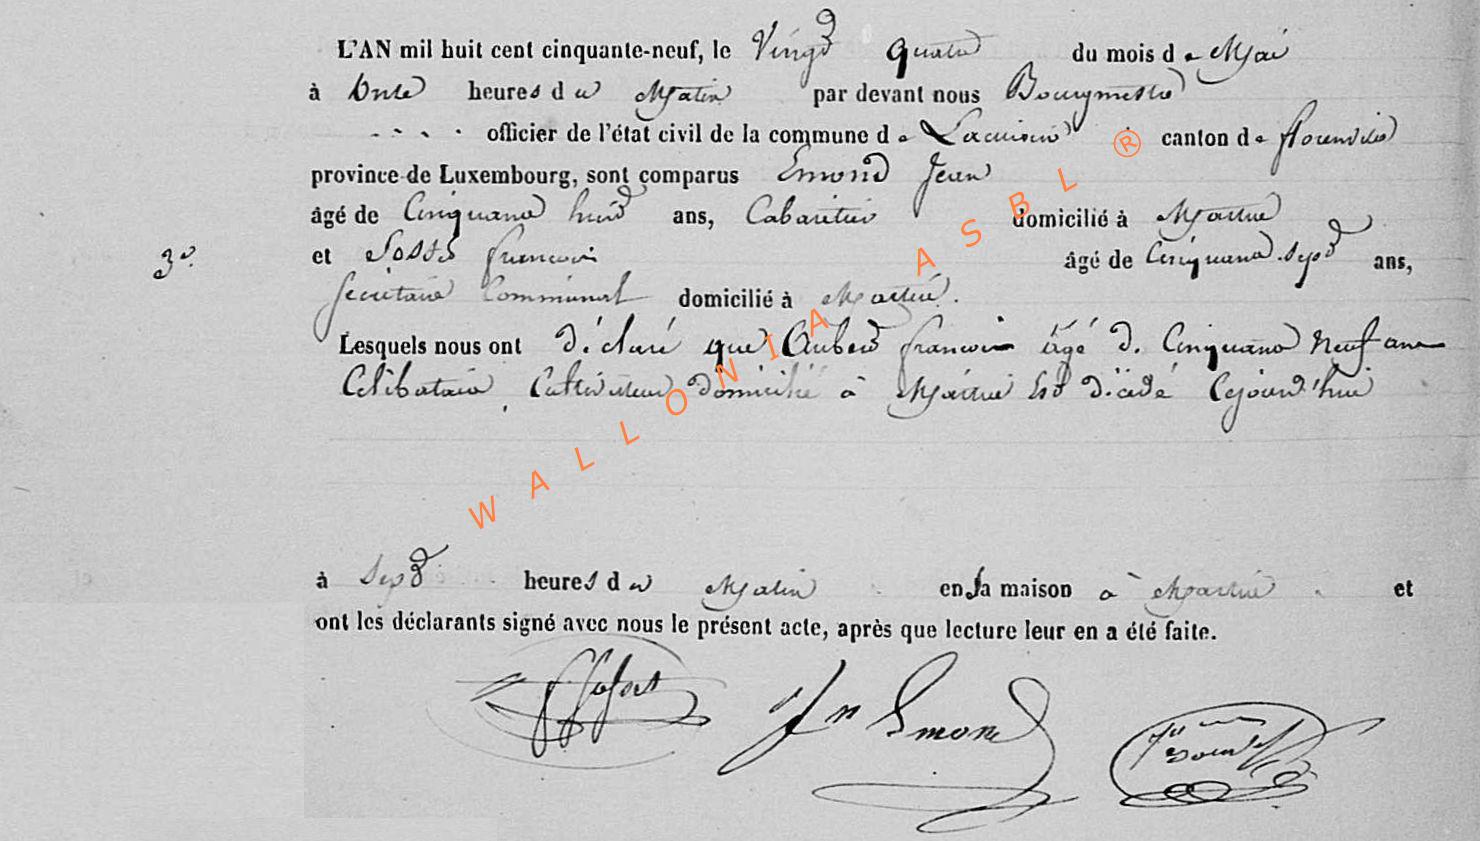 L'AN mil huit cent cinquante-neuf, le Vingt quatre du mois de Mai
à onze heures du Matin par devant nous Bourgmestre
officier de l'état civil de la commune de Lacuisine canton de florenville
province de Luxembourg, sont comparus Emond Jean
âgé de Cinquante huit ans, Cabaretier domicilié à Martué
3e.
et francois âgé de Cinquante-sept ans,
secretaire Communal domicilié à Martué.
Lesquels nous ont déclaré que Aubert francois âgé de Cinquante neuf ans
Celibataire Cultivateur domicilié à Martué Est décédé Cejourd'hui
à sept heures du Matin en sa maison à Martué et
ont les déclarants signé avec nous le présent acte, après que lecture leur en a été faite.
Jn Emond
WALLONIA ASBL ®